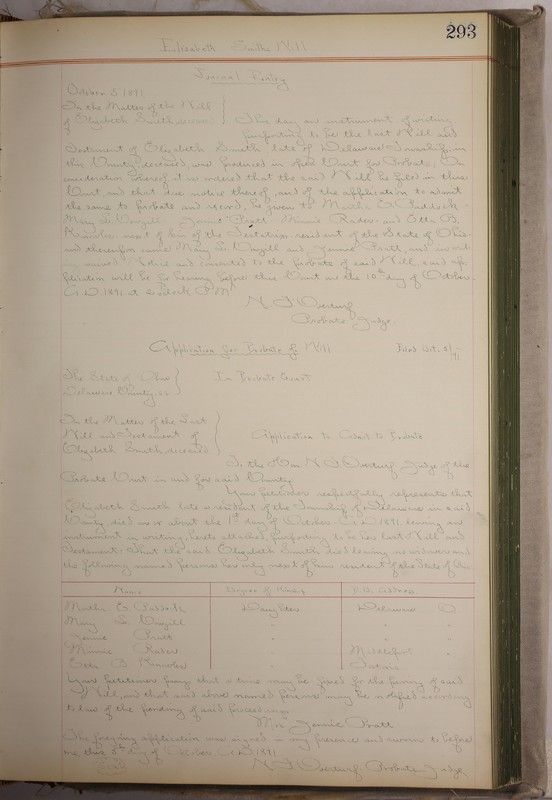 293
Elizabeth Smith Will
Journal Entry
October 8 1891
In the Matter of the Will
of Elizabeth Smith deceased } This day an instrument of writing
purporting to be the last Will and
Testament of Elizabeth Smith late of Delaware Township, in
this County, deceased, was produced in open Court for Probate. On
consideration thereof, it is ordered that the said Will be filed in this
Court and that due notice thereof, and of the application to admit
the same to probate and record, be given to Martha E. Paddock
Mary L. Jennie Pratt Minnie and Etta B.
next of kin of the Testatrix resident of the State of Ohio
and thereupon came Mary L. and Jennie Pratt, and in
notice and consented to the probate of said Will, said ap
plication will be for hearing before this Court on the 10th day of October
A.D. 1891 at 2 o'clock P.M.
Probate Judge.
Application for Probate of Will Filed Oct. 8/91
The State of Ohio
Delaware County, ss } In Probate Court
In the Matter of the Last
Will and Testament of
Elizabeth Smith deceased } Application to Admit to Probate
To the Hon. Judge of the
Probate Court in and for said County
Your petitioner respectfully represents that
Elizabeth Smith late a resident of the Township of Delaware in said
County, died on or about the 1st day of October A.D. 1891 leaving an
instrument in writing, hereto attached, purporting to be her last Will and
Testament: That the said Elizabeth Smith died leaving no widower and
the following named persons her only next of kin resident of the State of Ohio
Name Degree of Kinship P.O. Address
Martha E. Paddock Daughter Delaware O
Mary L. " " "
Jennie Pratt " " "
Minnie "
Etta B. "
Your petitioner prays that a time may be fixed for the proving of said
Will, and that said above named persons may be notified according
to law of the pending of said proceedings.
Mrs Jennie Pratt
The foregoing application was signed in my presence and sworn to before
me, this 8th day of October A.D. 1891
Probate Judge